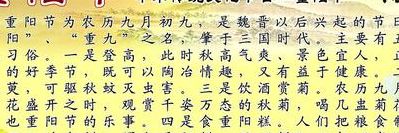 重阳节为农历九月初九，是魏晋以后兴起的节日
阳”、“重九”之名，肇于三国时代。主要有五
习俗。一是登高，此时秋高气爽，景色宜人，正
的好季节，既可以陶冶情趣，又有益于健康。二
萸，可驱秋蚊灭虫害。三是饮酒赏菊。农历九月
花盛开之时，观赏千姿万态的秋菊，喝几盅菊花
也重阳节的乐事。四是食重阳糕。人们把粮食制